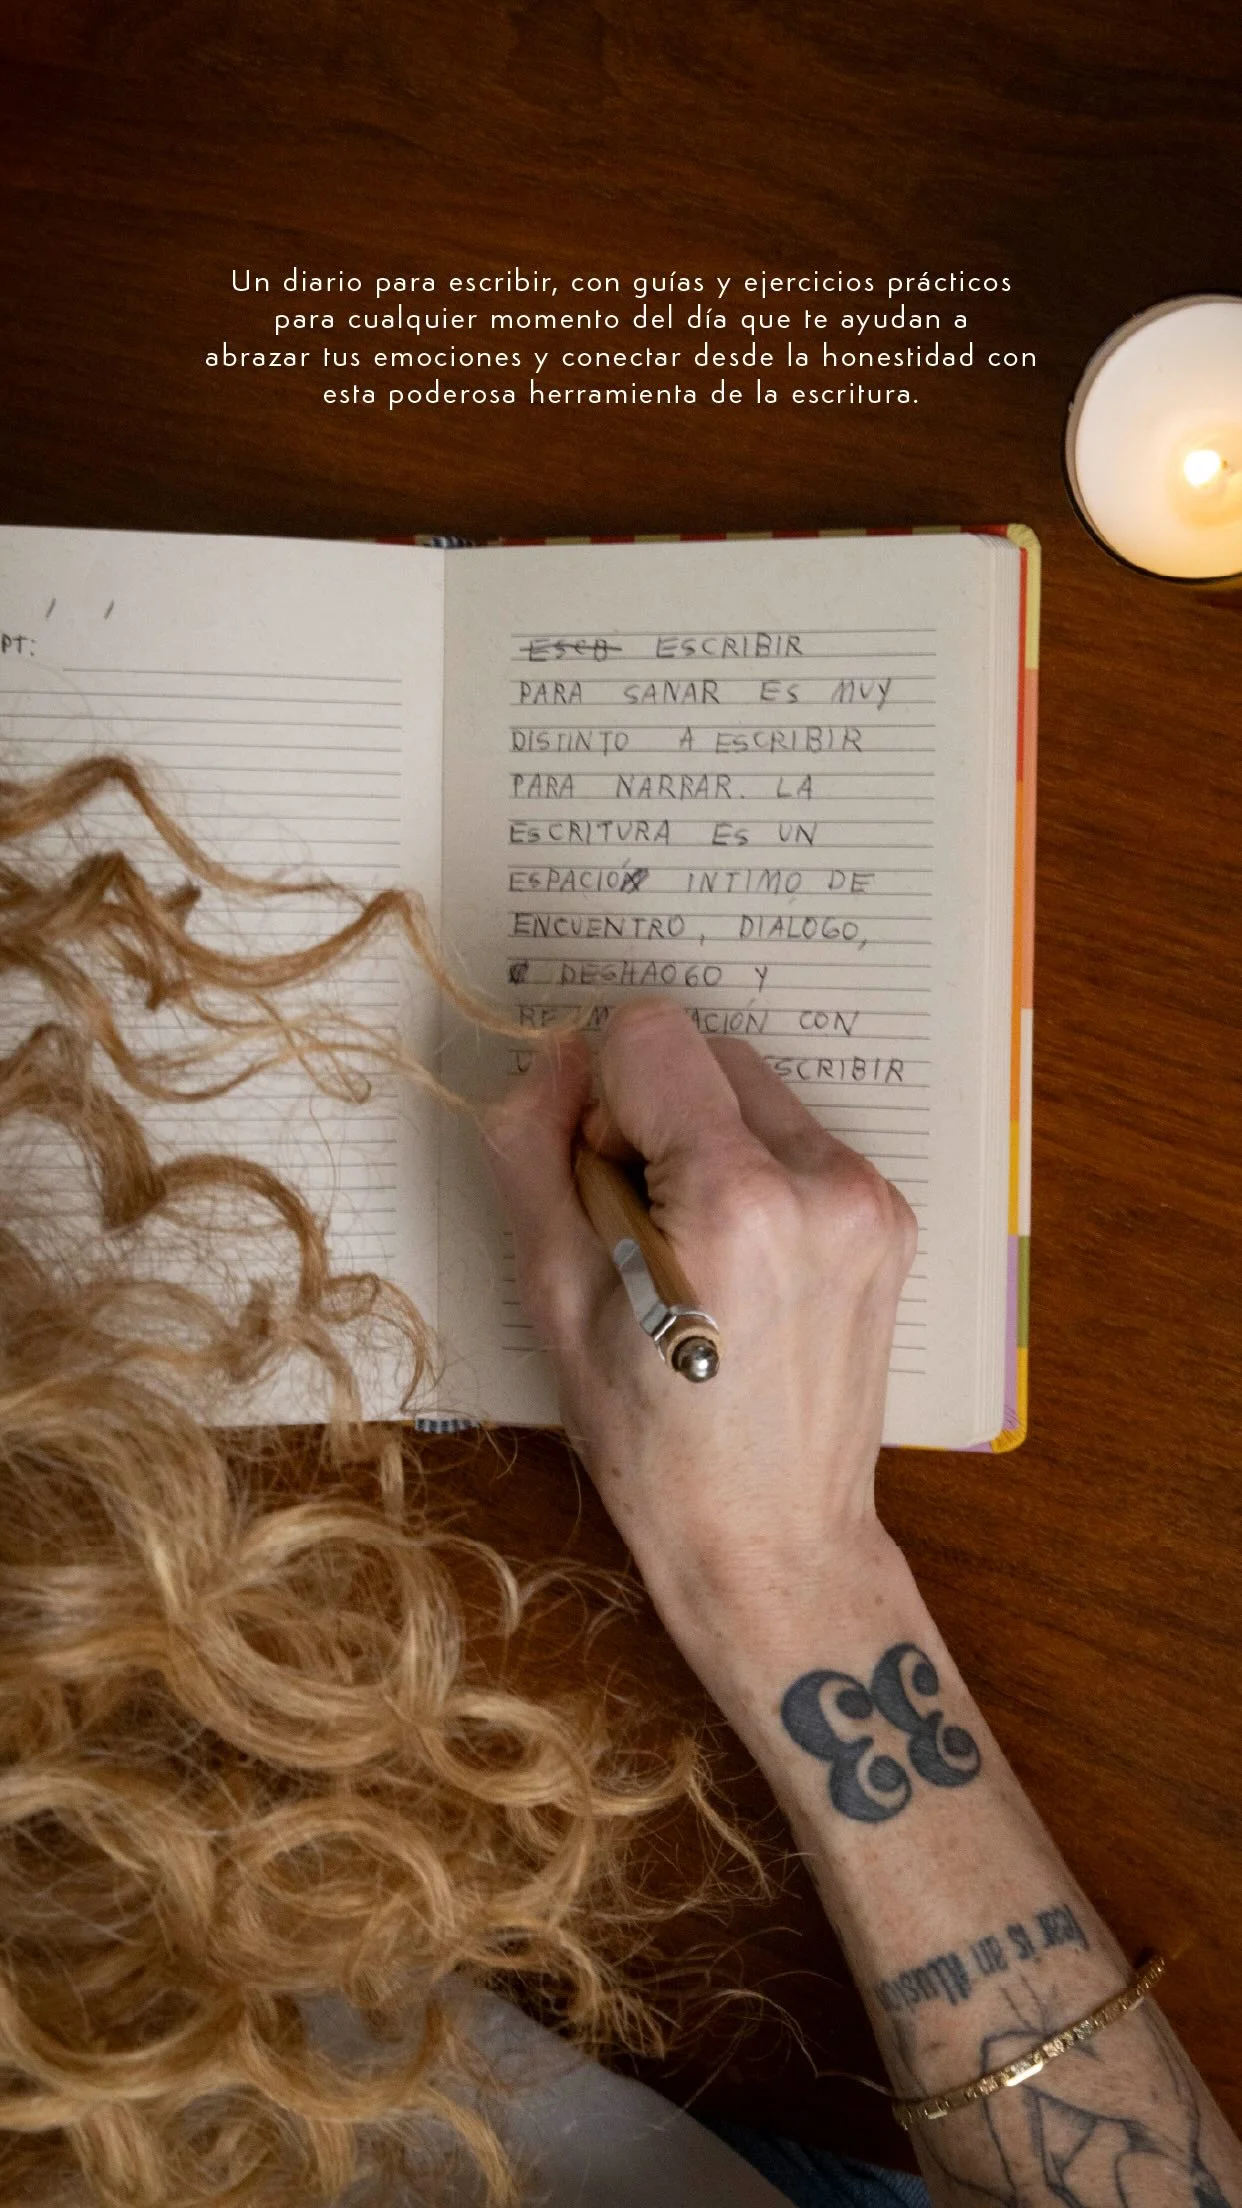 Un diario para escribir, con guías y ejercicios prácticos
para cualquier momento del día que te ayudan a
abrazar tus emociones y conectar desde la honestidad con
esta poderosa herramienta de la escritura.
/ /
PT:
ESCB ESCRIBIR
PARA SANAR ES MUY
DISTINTO A ESCRIBIR
PARA NARRAR. LA
ESCRITURA ES UN
ESPACIO INTIMO DE
ENCUENTRO, DIALOGO,
DESHAOGO Y
CON
ESCRIBIR
33
fear is an illusion